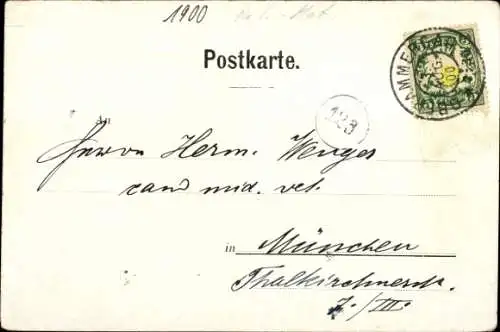 1900
Postkarte.
123
An
Herrn Herm. Wenger
cand med. vet.
in München
Thalkirchnerstr.
7./III.